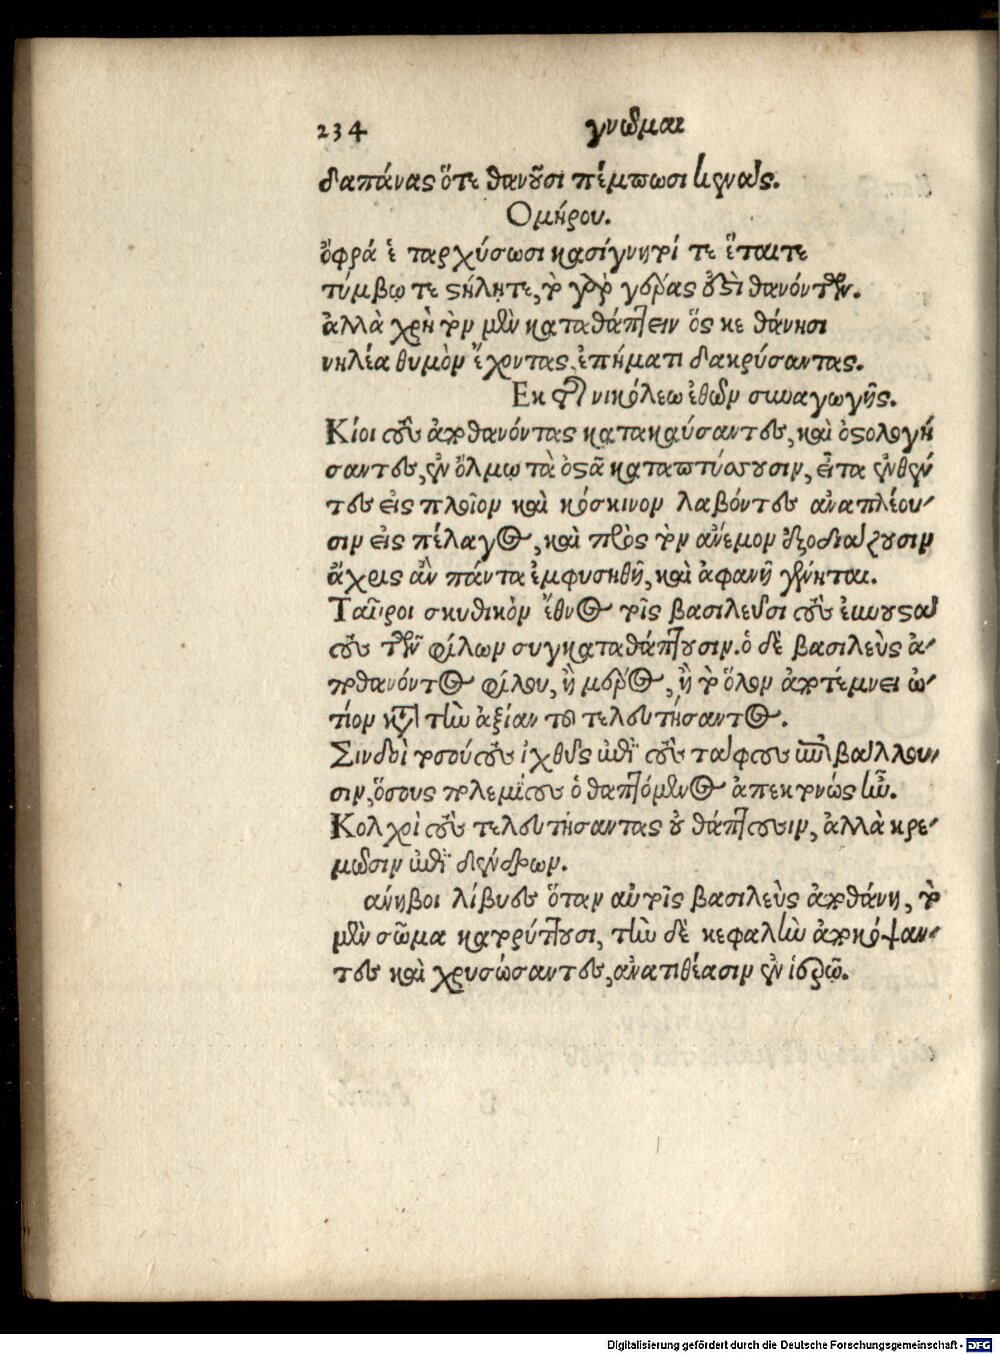 234 γνῶμαι
δαπάνας ὅτε θανοῦσι πέμπωσι κενάς.
Ομήρου.
ὄφρά ἑ ταρχύσωσι κασίγνητοί τε ἔταιτε
τύμβῳ τε στήλητε, τὸ γὰρ γέρας ὀστὶ θανόντων.
ἀλλὰ χρὴ τὸν μὲν καταθάπτειν ὅς κε θάνησι
νηλέα θυμὸν ἔχοντας, ἐπήματι δακρύσαντας.
Εκ τοῦ νικόλεω ἐθῶν συναγωγῆς.
Κίοι τοὺς ἀποθανόντας κατακαύσαντες, καὶ ὀστολογή
σαντες, ἐν ὅλμῳ τὰ ὀστᾶ καταπτύσσουσιν, εἶτα ἐνθέν
τες εἰς πλοῖον καὶ κόσκινον λαβόντες ἀναπλέου-
σιν εἰς πέλαγος, καὶ πρὸς τὸν ἄνεμον ἐξοδιάζουσιν
ἄχρις ἂν πάντα ἐμφυσηθῇ, καὶ ἀφανῆ γένηται.
Ταῦροι σκυθικὸν ἔθνος τοῖς βασιλεῦσι τοὺς ἐμουστάτους
τῶν φίλων συγκαταθάπτουσιν. ὁ δὲ βασιλεὺς ἀ-
ποθανόντος φίλου, ἢ μέρος, ἢ τὸ ὅλον ἀποτέμνει ὠ-
τίον κατὰ τὴν ἀξίαν τοῦ τελευτήσαντος.
Σινδοὶ τοσούτους ἰχθῦς ἐπὶ τοὺς τάφους ἐπιβάλλου-
σιν, ὅσους πολεμίους ὁ θαπτόμενος ἀπεκτονώς ἦν.
Κολχοὶ τοὺς τελευτήσαντας οὐ θάπτουσιν, ἀλλὰ κρε-
μῶσιν ἐπὶ δένδρων.
άνηβοι λίβυες ὅταν αὐτοῖς βασιλεὺς ἀποθάνῃ, τὸ
μὲν σῶμα κατορύττουσι, τὴν δὲ κεφαλὴν ἀποκόψαν-
τες καὶ χρυσώσαντες, ἀνατιθέασιν ἐν ἱερῷ.
Digitalisierung gefördert durch die Deutsche Forschungsgemeinschaft - DFG